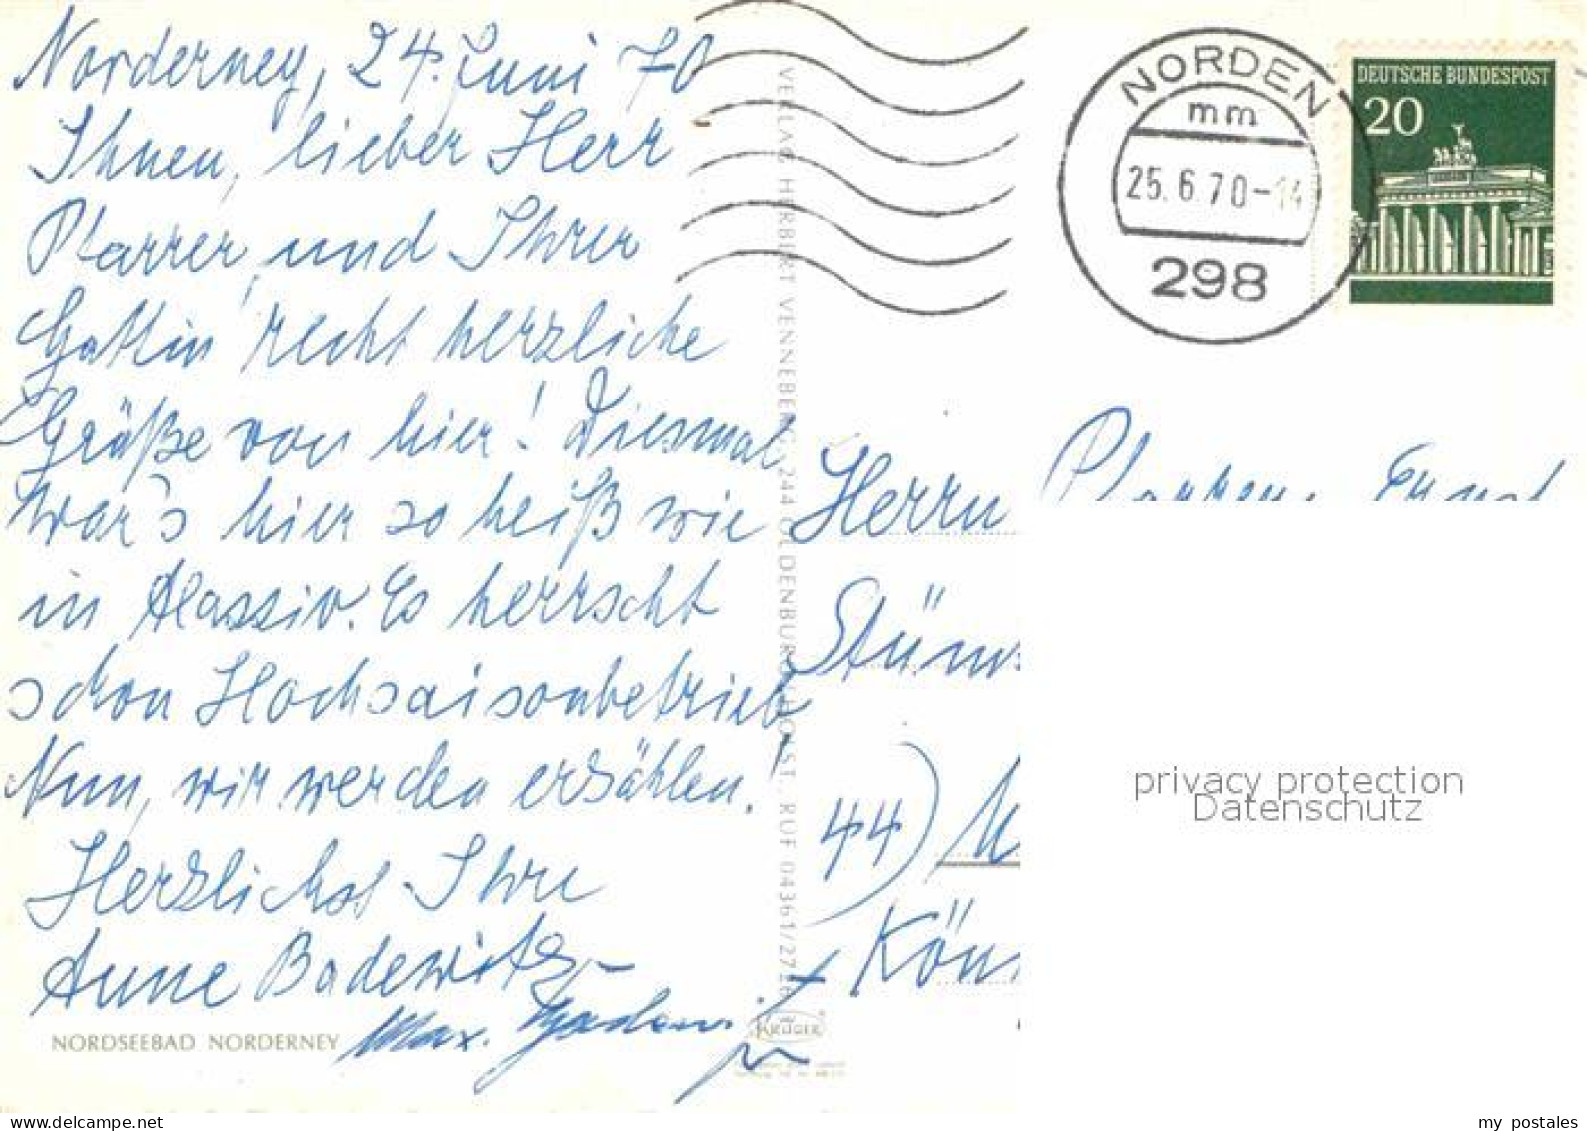 Norderney, 24. Juni 70
Ihnen, lieber Herr
Pfarrer, und Ihrer
Gattin recht herzliche
Grüße von hier! Diesmal
war's hier so heiß wie
in Alassio. Es herrscht
schon Hochsaisonbetrieb!
Nun, wir werden erzählen.
Herzlichst Ihre
Anne Badewitz
Max.
NORDSEEBAD NORDERNEY
VERLAG HERBERT VENNEBERG, 244 OLDENBURG/HOLST., RUF 04361/27
KRÜGER
NORDEN
mm
25.6.70-14
298
DEUTSCHE BUNDESPOST
20
Herrn
44)
privacy protection
Datenschutz
www.delcampe.net
my_postales